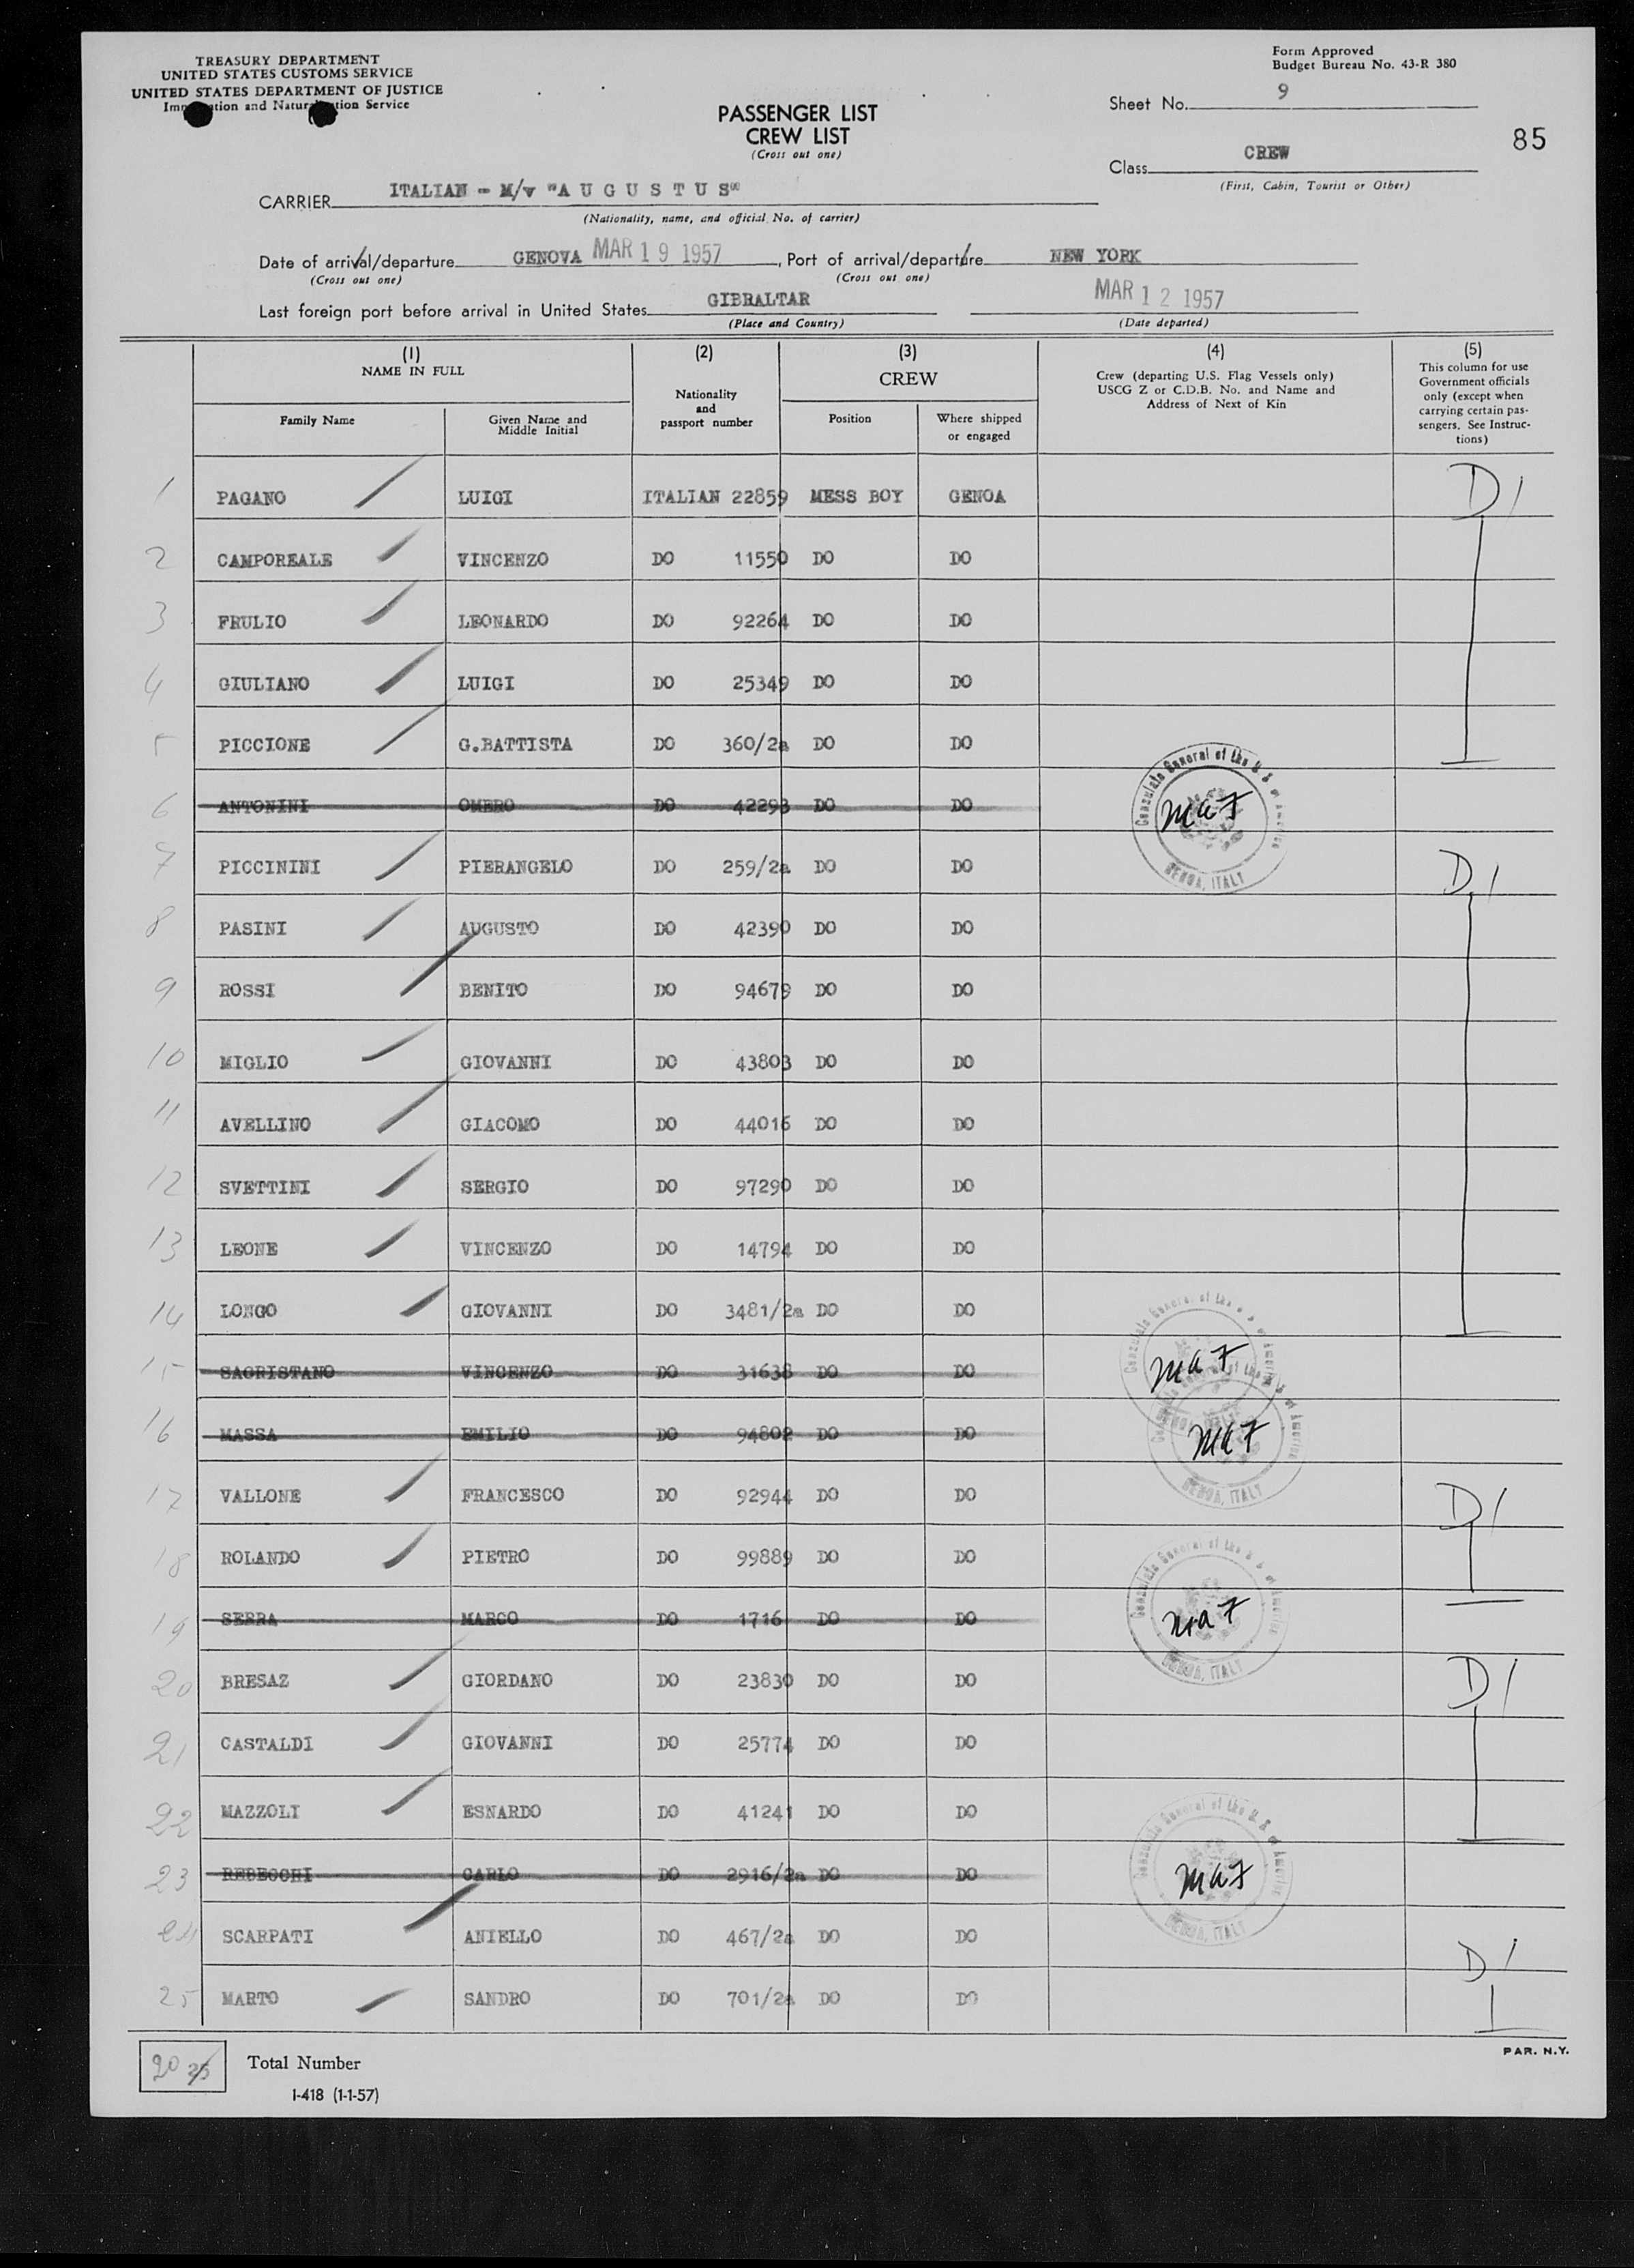 TREASURY DEPARTMENT
UNITED STATES CUSTOMS SERVICE
UNITED STATES DEPARTMENT OF JUSTICE
Immigration and Naturalization Service
Form Approved
Budget Bureau No. 43-R 380
PASSENGER LIST
CREW LIST
(Cross out one)
Sheet No. 9
85
Class CREW
(First, Cabin, Tourist or Other)
CARRIER ITALIAN - M/v "A U G U S T U S"
(Nationality, name, and official No. of carrier)
Date of arrival/departure GENOVA MAR 19 1957, Port of arrival/departure NEW YORK
(Cross out one) (Cross out one)
Last foreign port before arrival in United States GIBRALTAR MAR 12 1957
(Place and Country) (Date departed)
(1) NAME IN FULL
Family Name
Given Name and Middle Initial
(2) Nationality and passport number
(3) CREW
Position
Where shipped or engaged
(4) Crew (departing U.S. Flag Vessels only) USCG Z or C.D.B. No. and Name and Address of Next of Kin
(5) This column for use Government officials only (except when carrying certain passengers. See Instructions)
1 PAGANO LUIGI ITALIAN 22859 MESS BOY GENOA D1
2 CAMPOREALE VINCENZO DO 11550 DO DO
3 FRULIO LEONARDO DO 92264 DO DO
4 GIULIANO LUIGI DO 25349 DO DO
5 PICCIONE G.BATTISTA DO 360/2a DO DO
6 ANTONINI OMERO DO 42293 DO DO
Consulate General of the U S of America
GENOA, ITALY
7 PICCININI PIERANGELO DO 259/2a DO DO D1
8 PASINI AUGUSTO DO 42390 DO DO
9 ROSSI BENITO DO 94679 DO DO
10 MIGLIO GIOVANNI DO 43803 DO DO
11 AVELLINO GIACOMO DO 44016 DO DO
12 SVETTINI SERGIO DO 97290 DO DO
13 LEONE VINCENZO DO 14794 DO DO
14 LONGO GIOVANNI DO 3481/2a DO DO
15 SACRISTANO VINCENZO DO 31638 DO DO
16 MASSA EMILIO DO 94802 DO DO
GENOA, ITALY
17 VALLONE FRANCESCO DO 92944 DO DO D1
18 ROLANDO PIETRO DO 99889 DO DO
19 SERRA MARCO DO 1716 DO DO
GENOA, ITALY
20 BRESAZ GIORDANO DO 23830 DO DO D1
21 CASTALDI GIOVANNI DO 25774 DO DO
22 MAZZOLI ESNARDO DO 41241 DO DO
23 REBECCHI CARLO DO 2916/2a DO DO
GENOA, ITALY
24 SCARPATI ANIELLO DO 467/2a DO DO D1
25 MARTO SANDRO DO 701/2a DO DO
20 25 Total Number
PAR. N.Y.
I-418 (1-1-57)